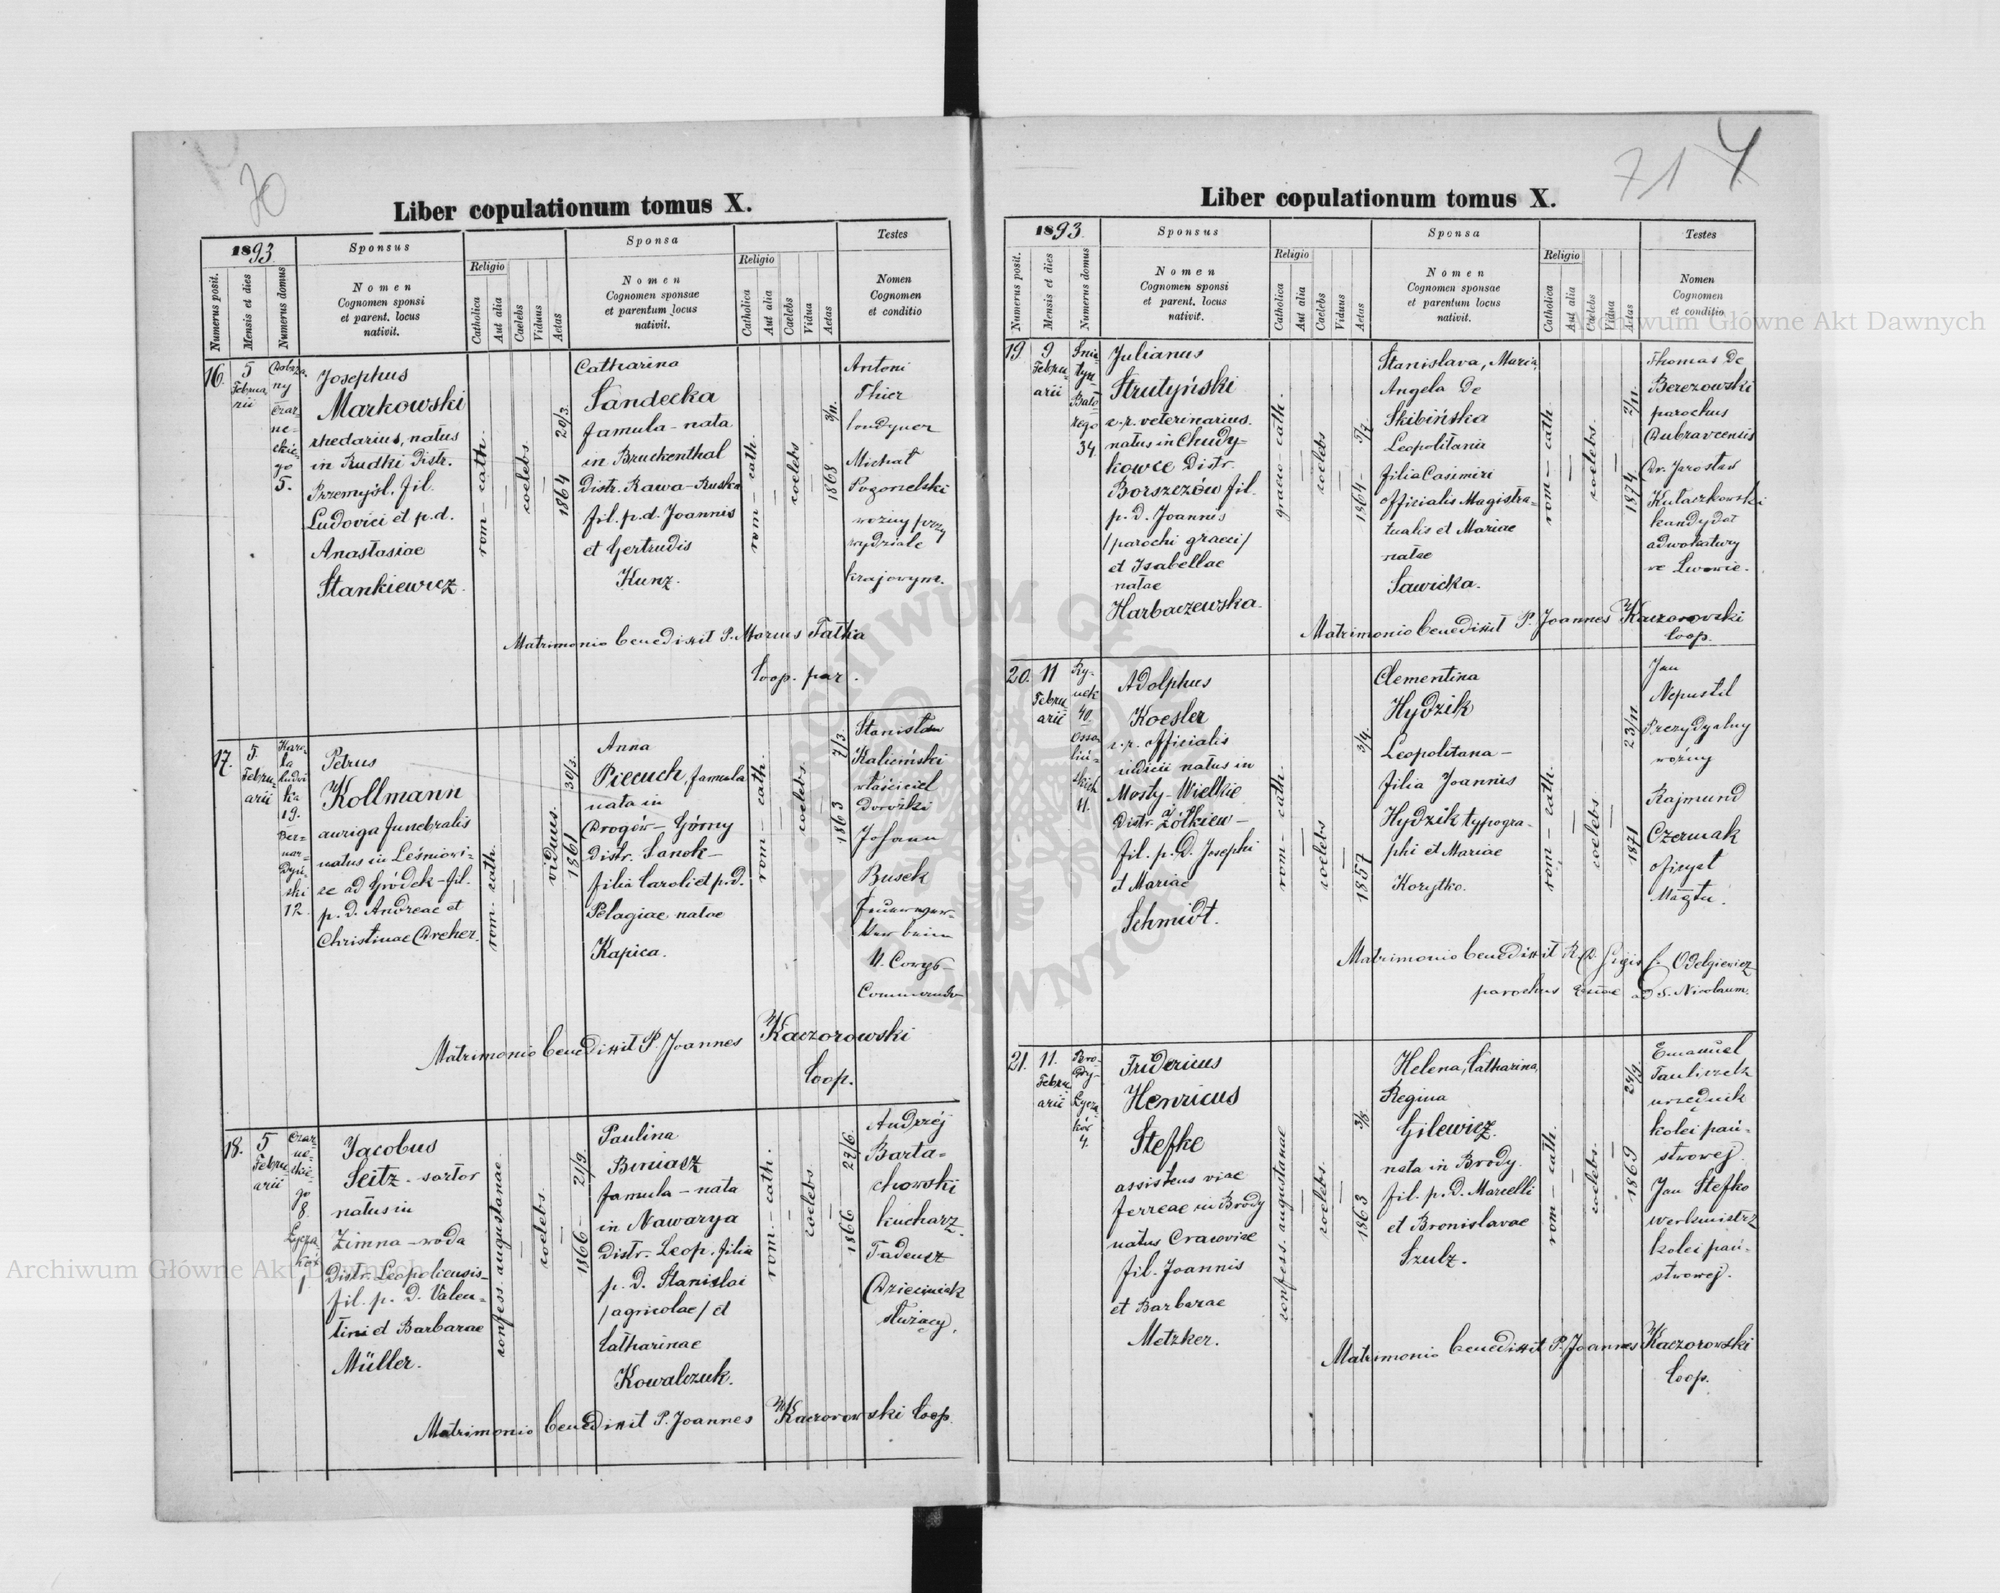 70
Liber copulationum tomus X.
1893.
Sponsus
Sponsa
Testes
Numerus posit.
Mensis et dies
Numerus domus
Nomen
Cognomen sponsi
et parent. locus
nativit.
Religio
Catholica
Aut alia
Caelebs
Viduus
Aetas
Nomen
Cognomen sponsae
et parentum locus
nativit.
Religio
Catholica
Aut alia
Caelebs
Vidua
Aetas
Nomen
Cognomen
et conditio
16.
5
Februa
rii
ny
Czar
ne-
ckie
go
5.
Josephus
Markowski
rhedarius, natus
in Rudki Distr.
Przemyśl, fil.
Ludovici et p.d.
Anastasiae
Stankiewicz.
rom - cath.
coelebs
1864 20/3.
Catharina
Sandecka
famula - nata
in Bruckenthal
Distr. Rawa-Ruska
fil. p.d. Joannis
et Gertrudis
Kunz.
rom - cath.
coelebs
1868
Antoni
Thier
londyner
Michał
Pogorzelski
woźny przy
wydziale
krajowym.
Matrimonio benedixit P. Morus Fatka
Coop. par.
17.
5.
Febru-
arii
Karo
la
Ludwi
ka
19.
Ber-
nar-
dyń-
ski
12.
Petrus
Kollmann
auriga funebralis
natus in Leśniowi-
ce ad Gródek - fil.
p. d. Andreae et
Christinae Dreher.
rom - cath.
viduus.
1861 30/3.
Anna
Piecuch, famula
nata in
Drogów - Górny
Distr. Sanok -
filia Caroli et p.d.
Pelagiae natae
Kapica.
rom - cath.
coelebs.
1863 7/3.
Stanisław
Kaliciński
właściciel
Dorożki
Johann
Busek
Feuerwer-
ker beim
11. Corps-
Commando
Matrimonio benedixit P. Joannes Kaczorowski
Coop.
18.
5
Febru
arii
Czar-
ne-
ckie-
go
8.
Łycza
ków
1.
Jacobus
Seitz - sartor
natus in
Zimna - woda
Distr. Leopoliensis -
fil. p. d. Valen-
tini et Barbarae
Müller.
confess. augustanae.
coelebs.
1866 - 21/9.
Paulina
Biniasz
famula - nata
in Nawarya
Distr. Leop. filia
p. d. Stanislai
/agricolae/ et
Catharinae
Kowalczuk.
rom. - cath.
coelebs
1866 - 22/6.
Andrzej
Barta-
chowski
kucharz.
Tadeusz
Dzieciniak
służący.
Matrimonio benedixit P. Joannes Kaczorowski Coop.
71
4
Liber copulationum tomus X.
1893.
Sponsus
Sponsa
Testes
Numerus posit.
Mensis et dies
Numerus domus
Nomen
Cognomen sponsi
et parent. locus
nativit.
Religio
Catholica
Aut alia
Caelebs
Viduus
Aetas
Nomen
Cognomen sponsae
et parentum locus
nativit.
Religio
Catholica
Aut alia
Caelebs
Vidua
Aetas
Nomen
Cognomen
et conditio
19.
9
Febru-
arii
Śnia-
tyn
Bato
rego
34.
Julianus
Strutyński
c.r. veterinarius.
natus in Chudy-
kowce Distr.
Borszczów fil.
p. d. Joannis
/parochi graeci/
et Isabellae
natae
Harbaczewska.
graeco - cath.
coelebs
1864 - 5/7.
Stanislava, Maria,
Angela de
Skibińska
Leopolitana
filia Casimiri
officialis Magistra-
tualis et Mariae
natae
Sawicka.
rom - cath.
coelebs.
1874 - 2/11.
Thomas de
Berezowski
parochus
Dubravcensis
Dr. Jarosław
Kułaczkowski
kandydat
adwokatury
we Lwowie.
Matrimonio benedixit P. Joannes Kaczorowski
Coop.
20.
11
Febru
arii
Ry-
nek
40.
Osso-
liń-
skich
11.
Adolphus
Koesler
c.r. officialis
iudicii natus in
Mosty-Wielkie
Distr. a Żółkiew -
fil. p. d. Josephi
et Mariae
Schmidt.
rom - cath.
coelebs
1857 3/4.
Clementina
Hydzik
Leopolitana -
filia Joannis
Hydzik typogra-
phi et Mariae
Korytko.
rom - cath.
coelebs
1871 23/11
Jan
Nepustil
Prezydyalny
woźny
Rajmund
Czermak
oficyał
Magtu.
Matrimonio benedixit R. D. Odelgiewicz
parochus ad S. Nicolaum.
21.
11.
Febru
arii
Bro-
dy -
Łycza
ków
4.
Fridericus
Henricus
Stefke
assistens viae
ferreae in Brody
natus Cracoviae
fil. Joannis
et Barbarae
Metzker.
confess. augustanae
coelebs.
1863 3/8.
Helena, Catharina,
Regina
Gilewicz.
nata in Brody.
fil. p. d. Marcelli
et Bronislavae
Szulz.
rom - cath.
coelebs.
1869 24/9.
Emanuel
urzędnik
kolei pań-
stwowej
Jan Stefko
werkmistrz
kolei pań-
stwowej.
Matrimonio benedixit P. Joannes Kaczorowski
Coop.
Archiwum Główne Akt Dawnych
Archiwum Główne Akt Dawnych